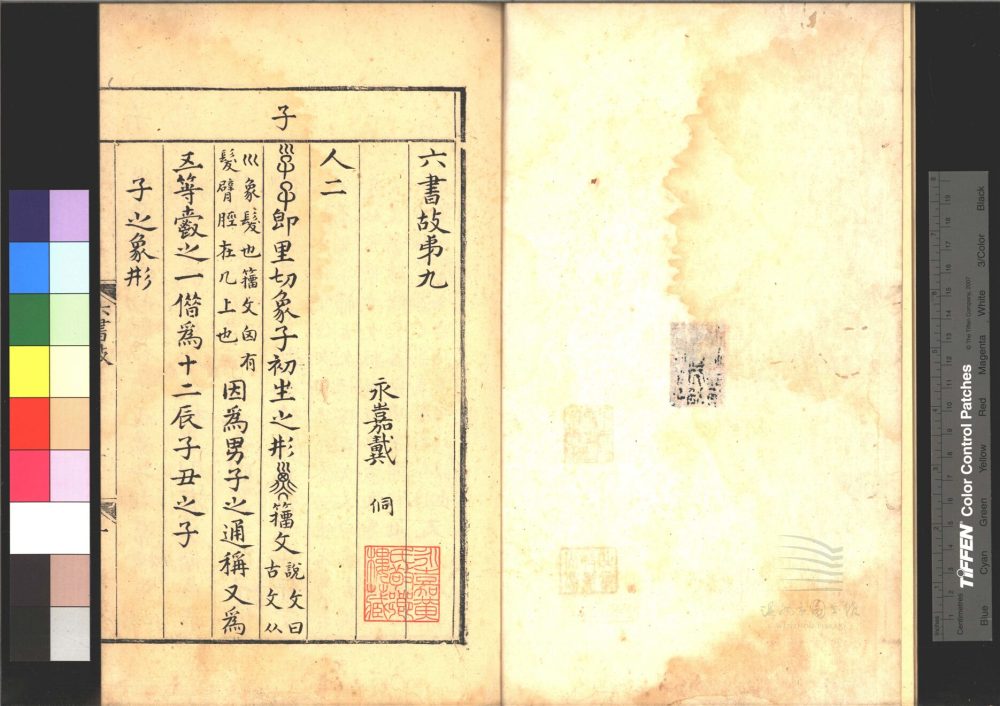 六書故弟九
永嘉戴 侗
人二
子
即里切象子初生之形
籒文
說文曰
古文从
巛象髮也籒文囟有
髮臂脛在几上也
因為男子之通稱又為
五等爵之一借為十二辰子丑之子
子之象形
六書故
一
TIFFEN® Color Control Patches
© The Tiffen Company, 2007
Centimetres
Inches
Blue
Cyan
Green
Yellow
Red
Magenta
White
3/Color
Black